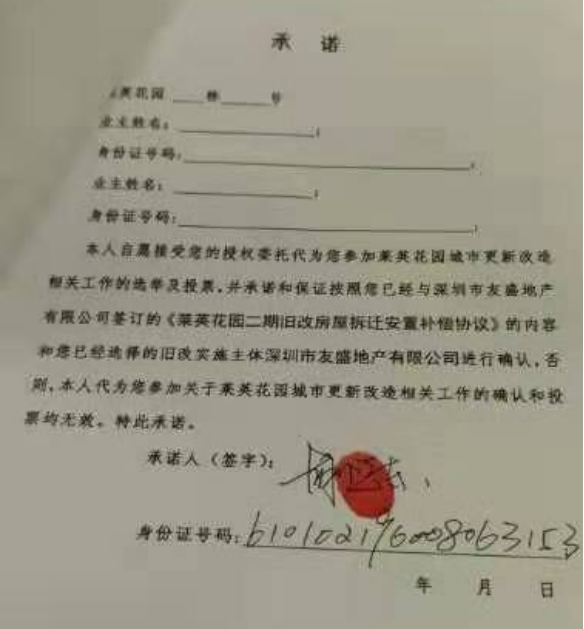 承诺
莱英花园____栋____号
业主姓名：____________；
身份证号码：____________________；
业主姓名：____________；
身份证号码：____________________；
本人自愿接受您的授权委托代为您参加莱英花园城市更新改造
相关工作的选举及投票，并承诺和保证按照您已经与深圳市友盛地产
有限公司签订的《莱英花园二期旧改房屋拆迁安置补偿协议》的内容
和您已经选择的旧改实施主体深圳市友盛地产有限公司进行确认，否
则，本人代为您参加关于莱英花园城市更新改造相关工作的确认和投
票均无效。特此承诺。
承诺人（签字）：
身份证号码：610102196008063153
年 月 日